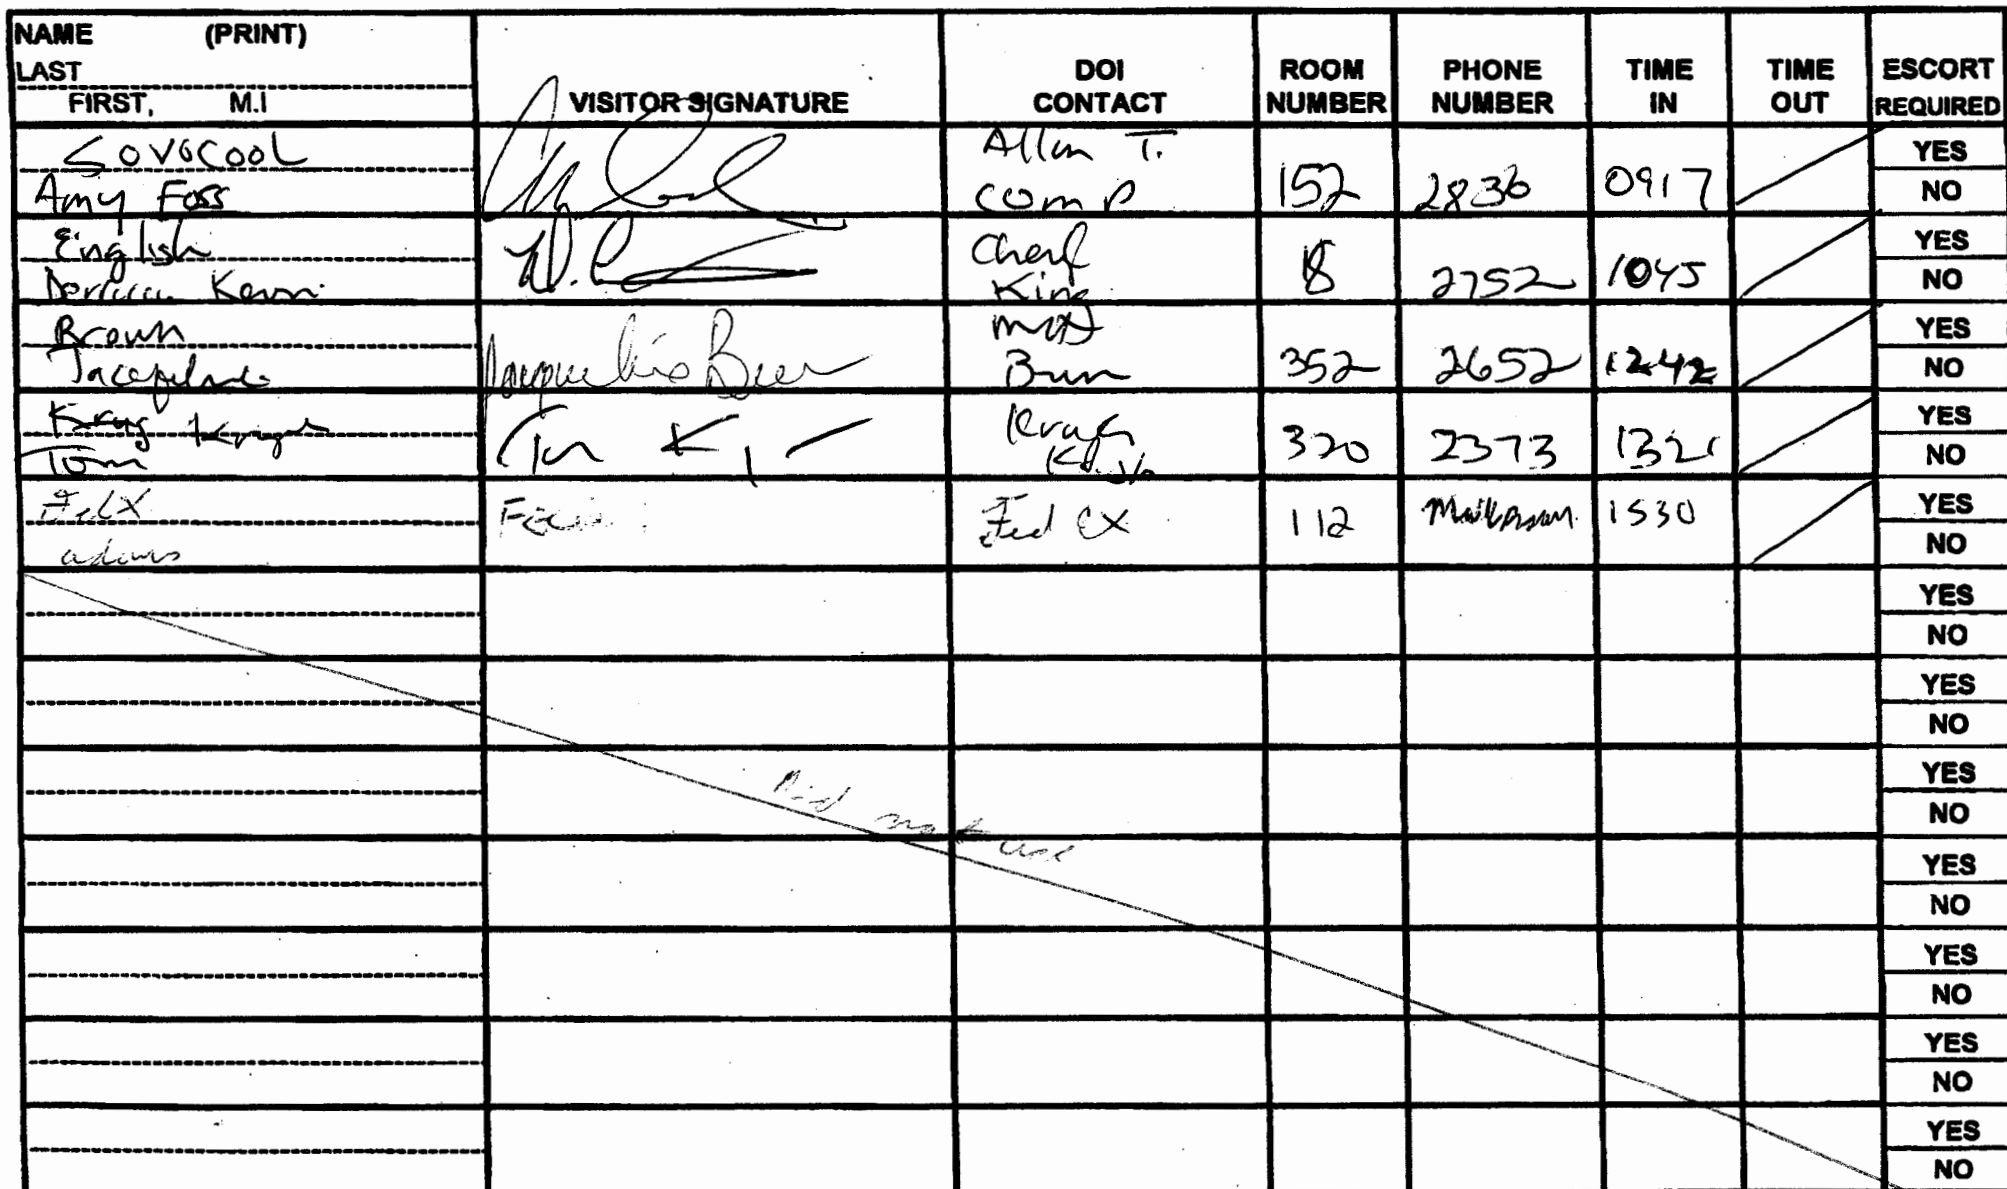 NAME (PRINT)
LAST
FIRST, M.I
VISITOR SIGNATURE
DOI
CONTACT
ROOM
NUMBER
PHONE
NUMBER
TIME
IN
TIME
OUT
ESCORT
REQUIRED
SOVOCOOL
Amy Foss
Allen T.
Comp
152
2836
0917
YES
NO
English
Cheryl
King
8
2752
1045
YES
NO
Brown
Jacqueline
Jacqueline
352
2652
1242
YES
NO
Krug
Tom
320
2373
1321
YES
NO
FedX
adams
Fed EX
112
Mailroom
1530
YES
NO
YES
NO
YES
NO
Did not use
YES
NO
YES
NO
YES
NO
YES
NO
YES
NO